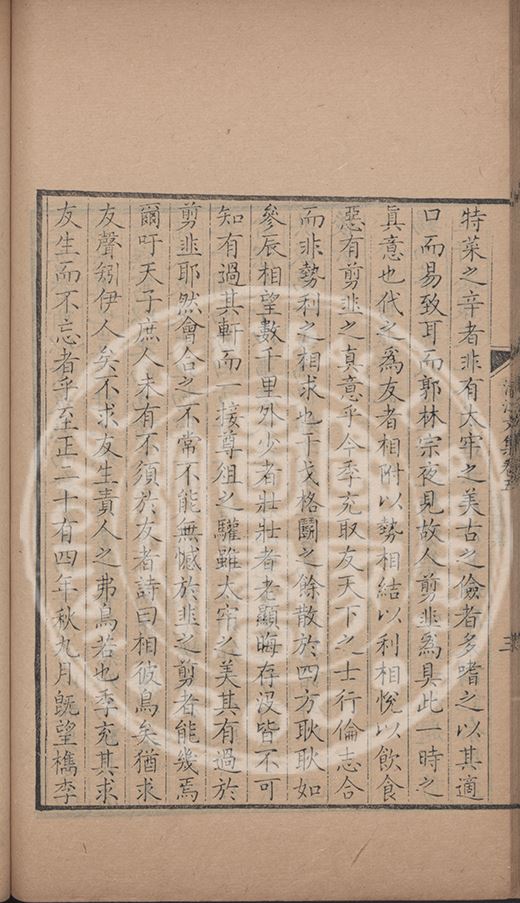 特菜之辛者非有太牢之美古之儉者多嗜之以其適
口而易致耳而郭林宗夜見故人剪韭爲具此一時之
眞意也代之爲友者相附以勢相結以利相悅以飲食
惡有剪韭之真意乎今季充取友天下之士行倫志合
而非勢利之相求也干戈格鬭之餘散於四方耿耿如
參辰相望數千里外少者壯壯者老顯晦存沒皆不可
知有過其軒而一接尊俎之驩雖太牢之美其有過於
剪韭耶然會合之不常不能無憾於韭之剪者能幾焉
爾吁天子庶人未有不須於友者詩曰相彼鳥矣猶求
友聲矧伊人矣不求友生責人之弗鳥若也季充其求
友生而不忘者乎至正二十有四年秋九月旣望檇李